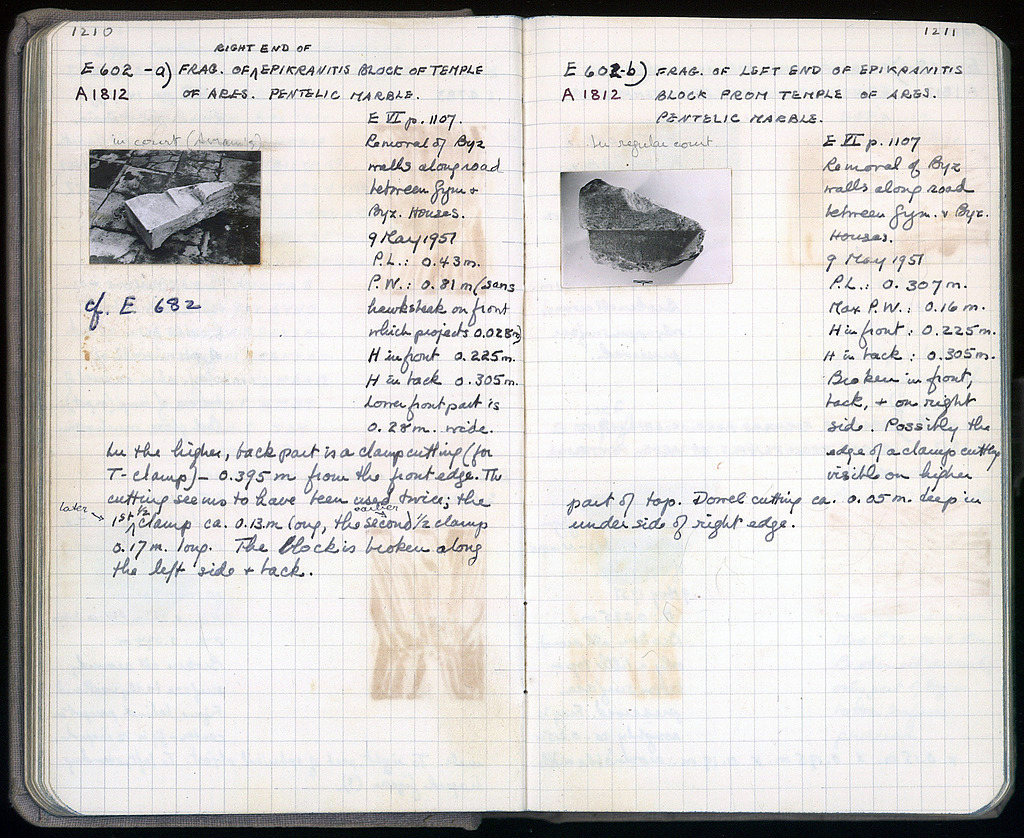 1210
RIGHT END OF
E 602 -a) FRAG. OF ∧ EPIKRANITIS BLOCK OF TEMPLE
A 1812 OF ARES. PENTELIC MARBLE.
in court
E VI p. 1107.
Removal of Byz
walls along road
between Gym +
Byz. Houses.
9 May 1951
P.L.: 0.43 m.
P.W.: 0.81 m (sans
hawksbeak on front
which projects 0.028 m)
H in front 0.225 m.
H in back 0.305 m.
Lower front part is
0.28 m. wide.
cf. E 682
In the higher, back part is a clamp cutting (for
T-clamp) – 0.395 m from the front edge. The
cutting seems to have been used twice; the
later → 1st ½ clamp ca. 0.13 m long, the (second) earlier ½ clamp
0.17 m. long. The block is broken along
the left side + back.
1211
E 602-b) FRAG. OF LEFT END OF EPIKRANITIS
A 1812 BLOCK FROM TEMPLE OF ARES.
PENTELIC MARBLE.
In regular court
E VI p. 1107
Removal of Byz
walls along road
between Gym. + Byz.
Houses.
9 May 1951
P.L.: 0.307 m.
Max P.W.: 0.16 m.
H in front: 0.225 m.
H in back: 0.305 m.
Broken in front,
back, + on right
side. Possibly the
edge of a clamp cutting
visible on higher
part of top. Dowel cutting ca. 0.05 m. deep in
under side of right edge.